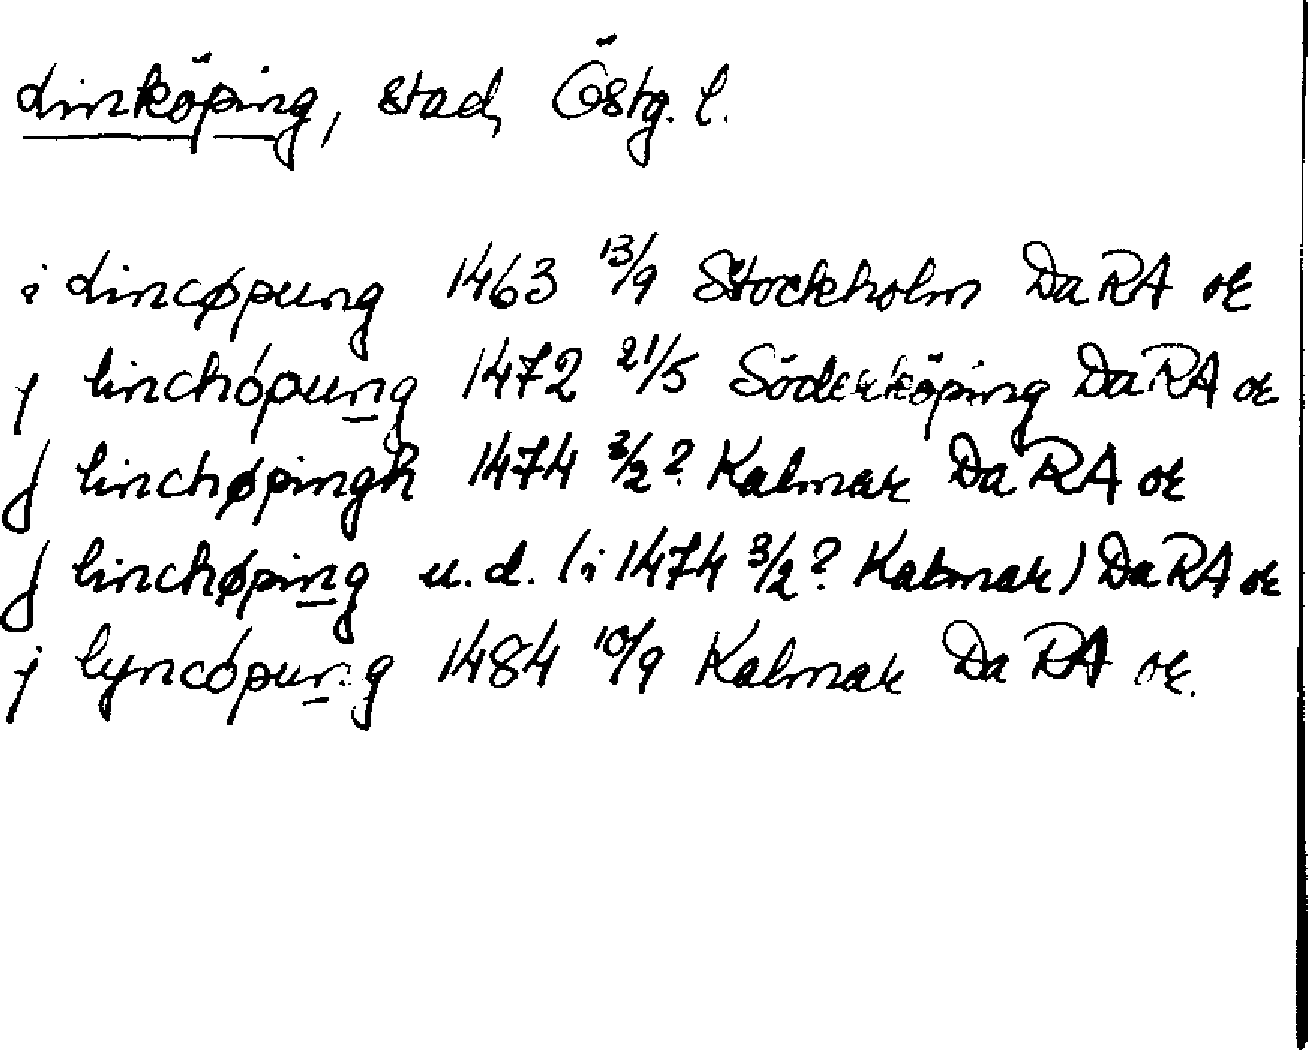 Linköping, stad, Östg. l.
i Lincøpung 1463 13/9 Stockholm DaRA or
j linchópung 1472 21/5 Söderköping DaRA or
J linchøpingh 1474 3/2? Kalmar DaRA or
J linchøping u.d. (i 1474 3/2? Kalmar) DaRA or
j lyncópung 1484 10/9 Kalmar DaRA or.